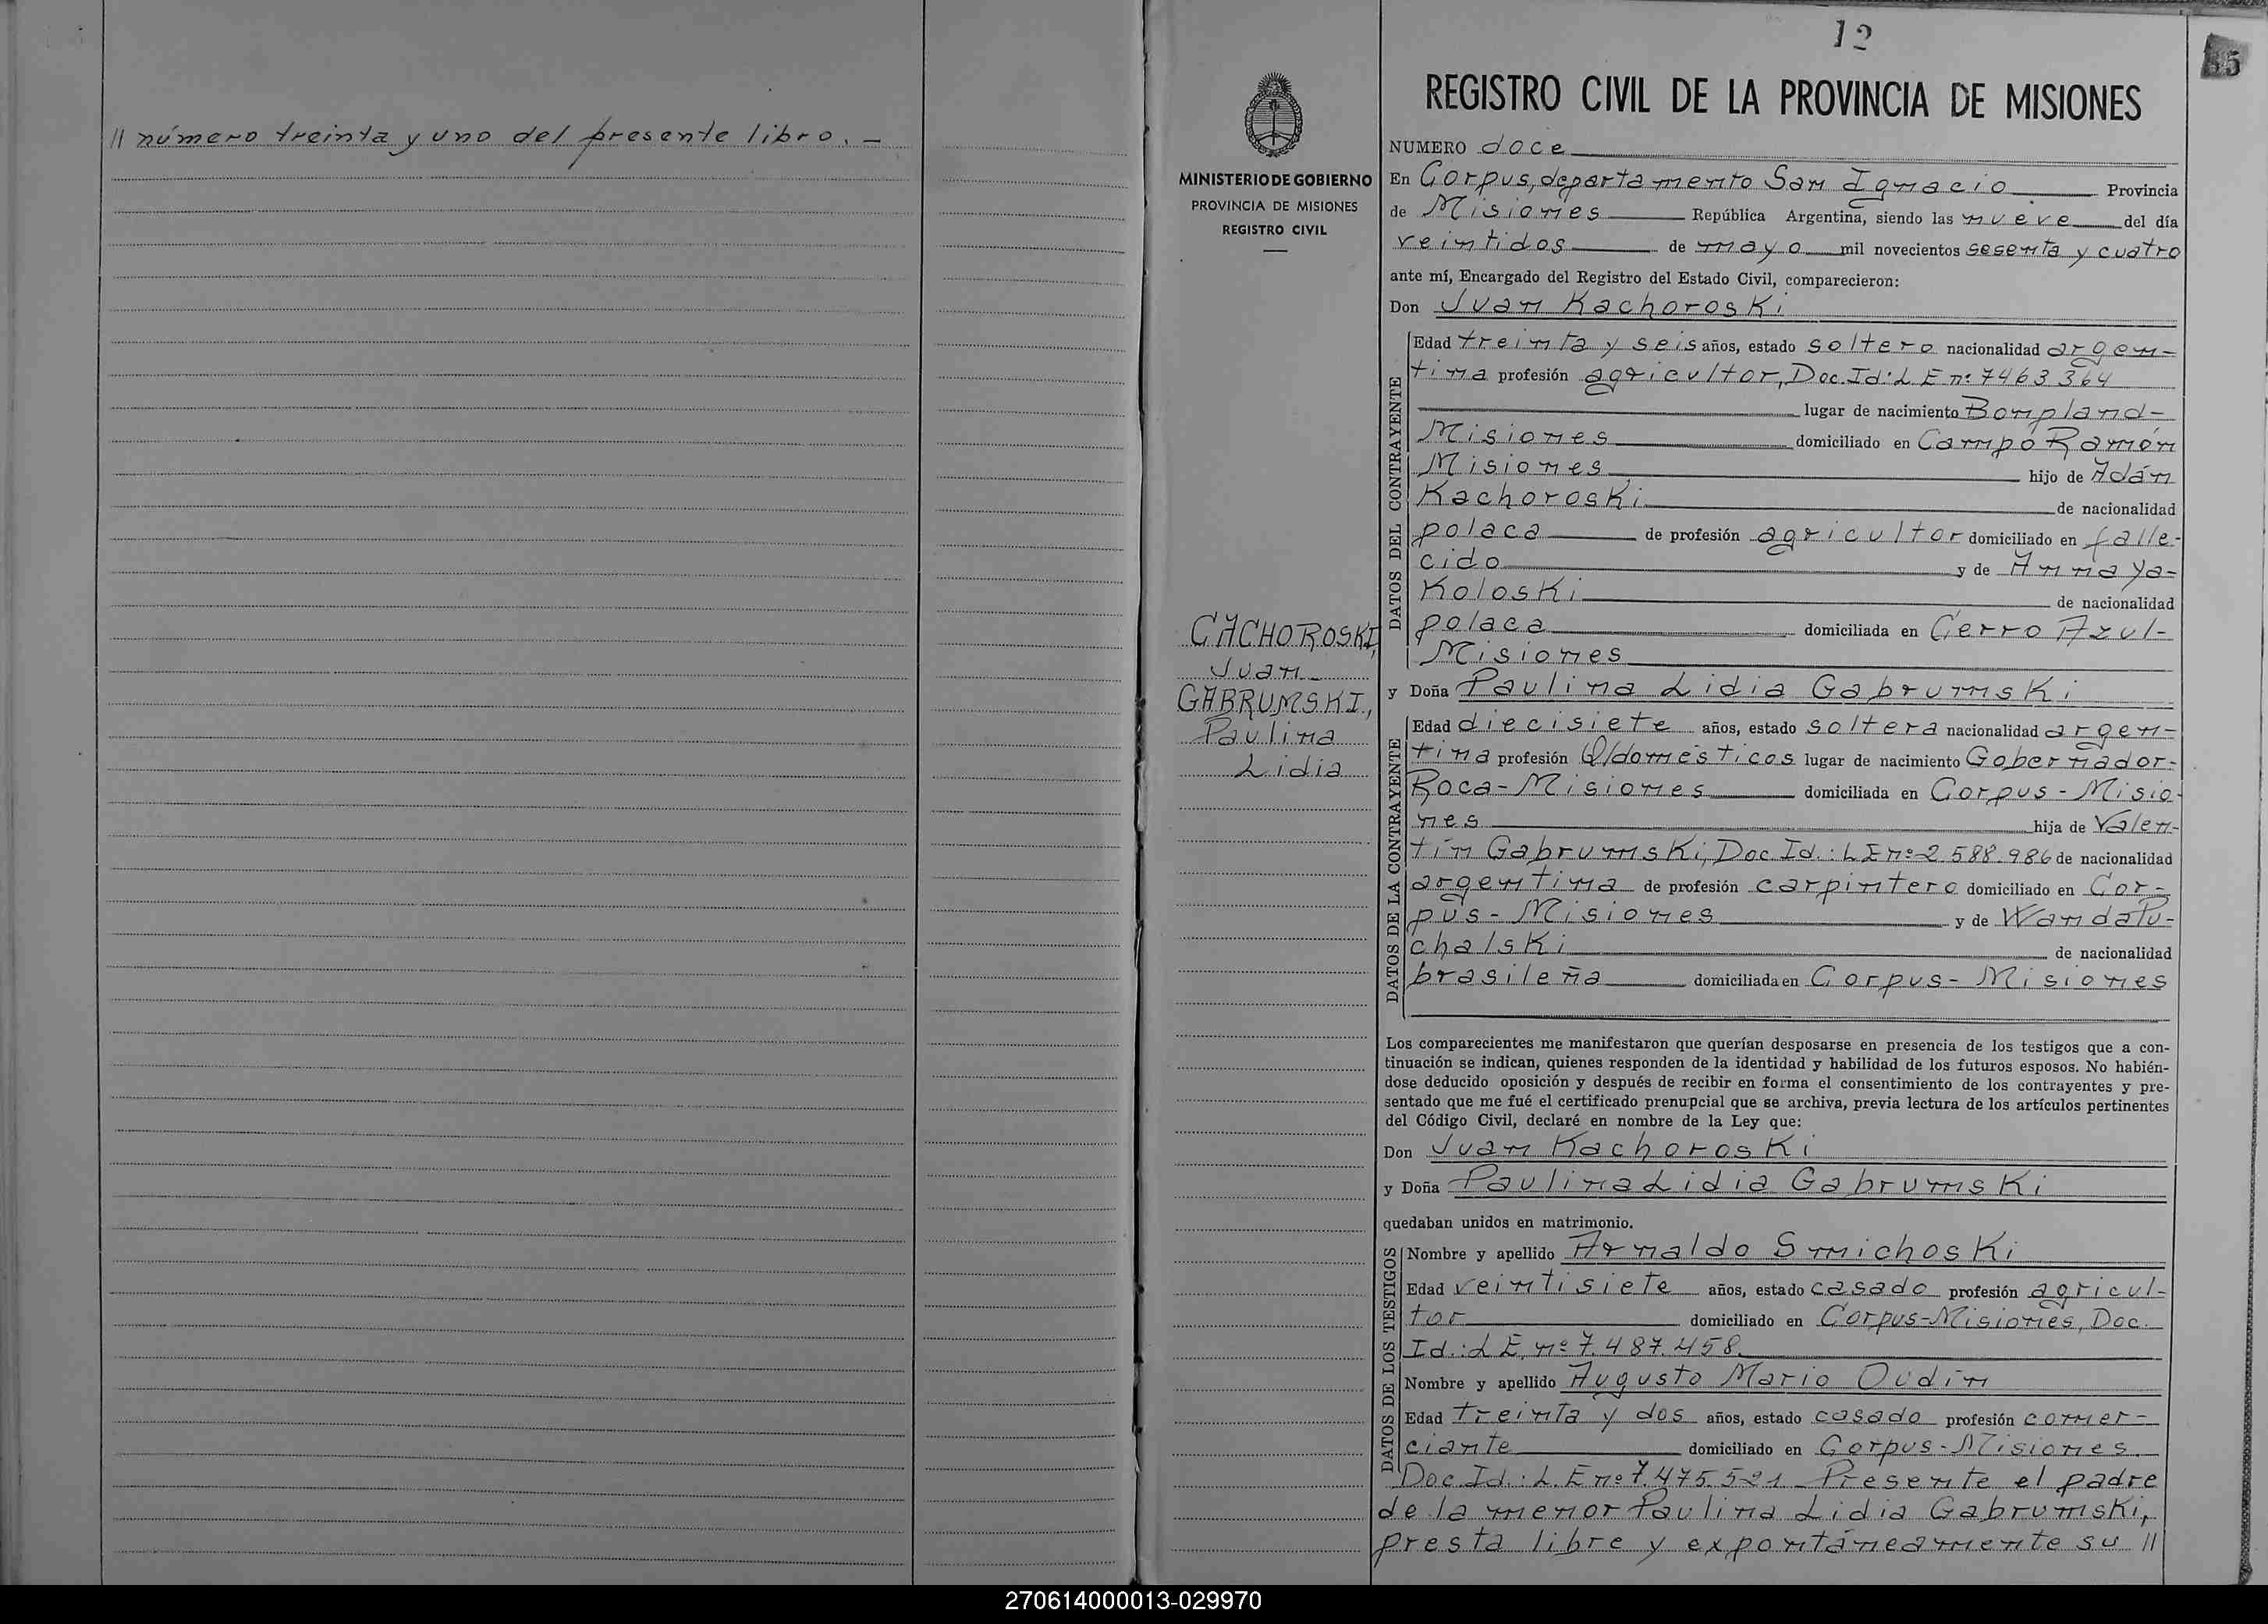 // número treinta y uno del presente libro. —
12
35
REGISTRO CIVIL DE LA PROVINCIA DE MISIONES
MINISTERIO DE GOBIERNO
PROVINCIA DE MISIONES
REGISTRO CIVIL
CACHOROSKI,
Juan
GABRUMSKI,
Paulina
Lidia
NUMERO doce
En Corpus, departamento San Ignacio Provincia
de Misiones República Argentina, siendo las nueve del día
veintidos de mayo mil novecientos sesenta y cuatro
ante mí, Encargado del Registro del Estado Civil, comparecieron:
Don Juan Kachoroski
DATOS DEL CONTRAYENTE
Edad treinta y seis años, estado soltero nacionalidad argen-
tina profesión agricultor, Doc. Id: L E nº 7463364
lugar de nacimiento Bompland-
Misiones domiciliado en Campo Ramón
Misiones hijo de Adán
Kachoroski de nacionalidad
polaca de profesión agricultor domiciliado en falle-
cido y de Anna Ya-
Koloski de nacionalidad
polaca domiciliada en Cerro Azul-
Misiones
y Doña Paulina Lidia Gabrumski
DATOS DE LA CONTRAYENTE
Edad diecisiete años, estado soltera nacionalidad argen-
tina profesión Q/domésticos lugar de nacimiento Gobernador-
Roca-Misiones domiciliada en Corpus-Misio-
nes hija de Valen-
tín Gabrumski, Doc. Id.: L E nº 2.588.986 de nacionalidad
argentina de profesión carpintero domiciliado en Cor-
pus-Misiones y de Wanda Pu-
chalski de nacionalidad
brasileña domiciliada en Corpus-Misiones
Los comparecientes me manifestaron que querían desposarse en presencia de los testigos que a con-
tinuación se indican, quienes responden de la identidad y habilidad de los futuros esposos. No habién-
dose deducido oposición y después de recibir en forma el consentimiento de los contrayentes y pre-
sentado que me fué el certificado prenupcial que se archiva, previa lectura de los artículos pertinentes
del Código Civil, declaré en nombre de la Ley que:
Don Juan Kachoroski
y Doña Paulina Lidia Gabrumski
quedaban unidos en matrimonio.
DATOS DE LOS TESTIGOS
Nombre y apellido Arnaldo Smichoski
Edad veintisiete años, estado casado profesión agricul-
tor domiciliado en Corpus-Misiones, Doc.
Id.: L E. nº 7.487.458.
Nombre y apellido Augusto Mario Oudín
Edad treinta y dos años, estado casado profesión comer-
ciante domiciliado en Corpus-Misiones.
Doc. Id.: L. E nº 7.475.521 — Presente el padre
de la menor Paulina Lidia Gabrumski,
presta libre y expontáneamente su //
270614000013-029970